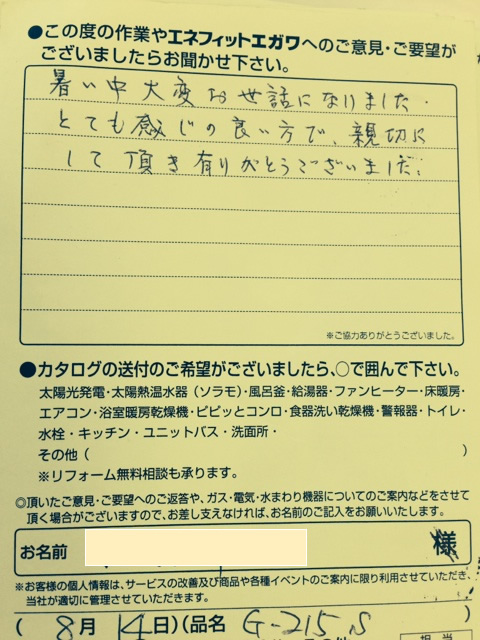 ●この度の作業やエネフィットエガワへのご意見・ご要望が
ございましたらお聞かせ下さい。
暑い中大変お世話になりました.
とても感じの良い方で、親切に
して頂き有りがとうございました。
※ご協力ありがとうございました。
●カタログの送付のご希望がございましたら、○で囲んで下さい。
太陽光発電・太陽熱温水器（ソラモ）・風呂釜・給湯器・ファンヒーター・床暖房・
エアコン・浴室暖房乾燥機・ピピッとコンロ・食器洗い乾燥機・警報器・トイレ・
水栓・キッチン・ユニットバス・洗面所・
その他（ ）
※リフォーム無料相談も承ります。
◎頂いたご意見・ご要望へのご返答や、ガス・電気・水まわり機器についてのご案内などをさせて
頂く場合がございますので、お差し支えなければ、お名前のご記入をお願いいたします。
お名前 様
※お客様の個人情報は、サービスの改善及び商品や各種イベントのご案内に限り利用させていただき、
当社が適切に管理させていただきます。
( 8月 14日)(品名 G-215
担当